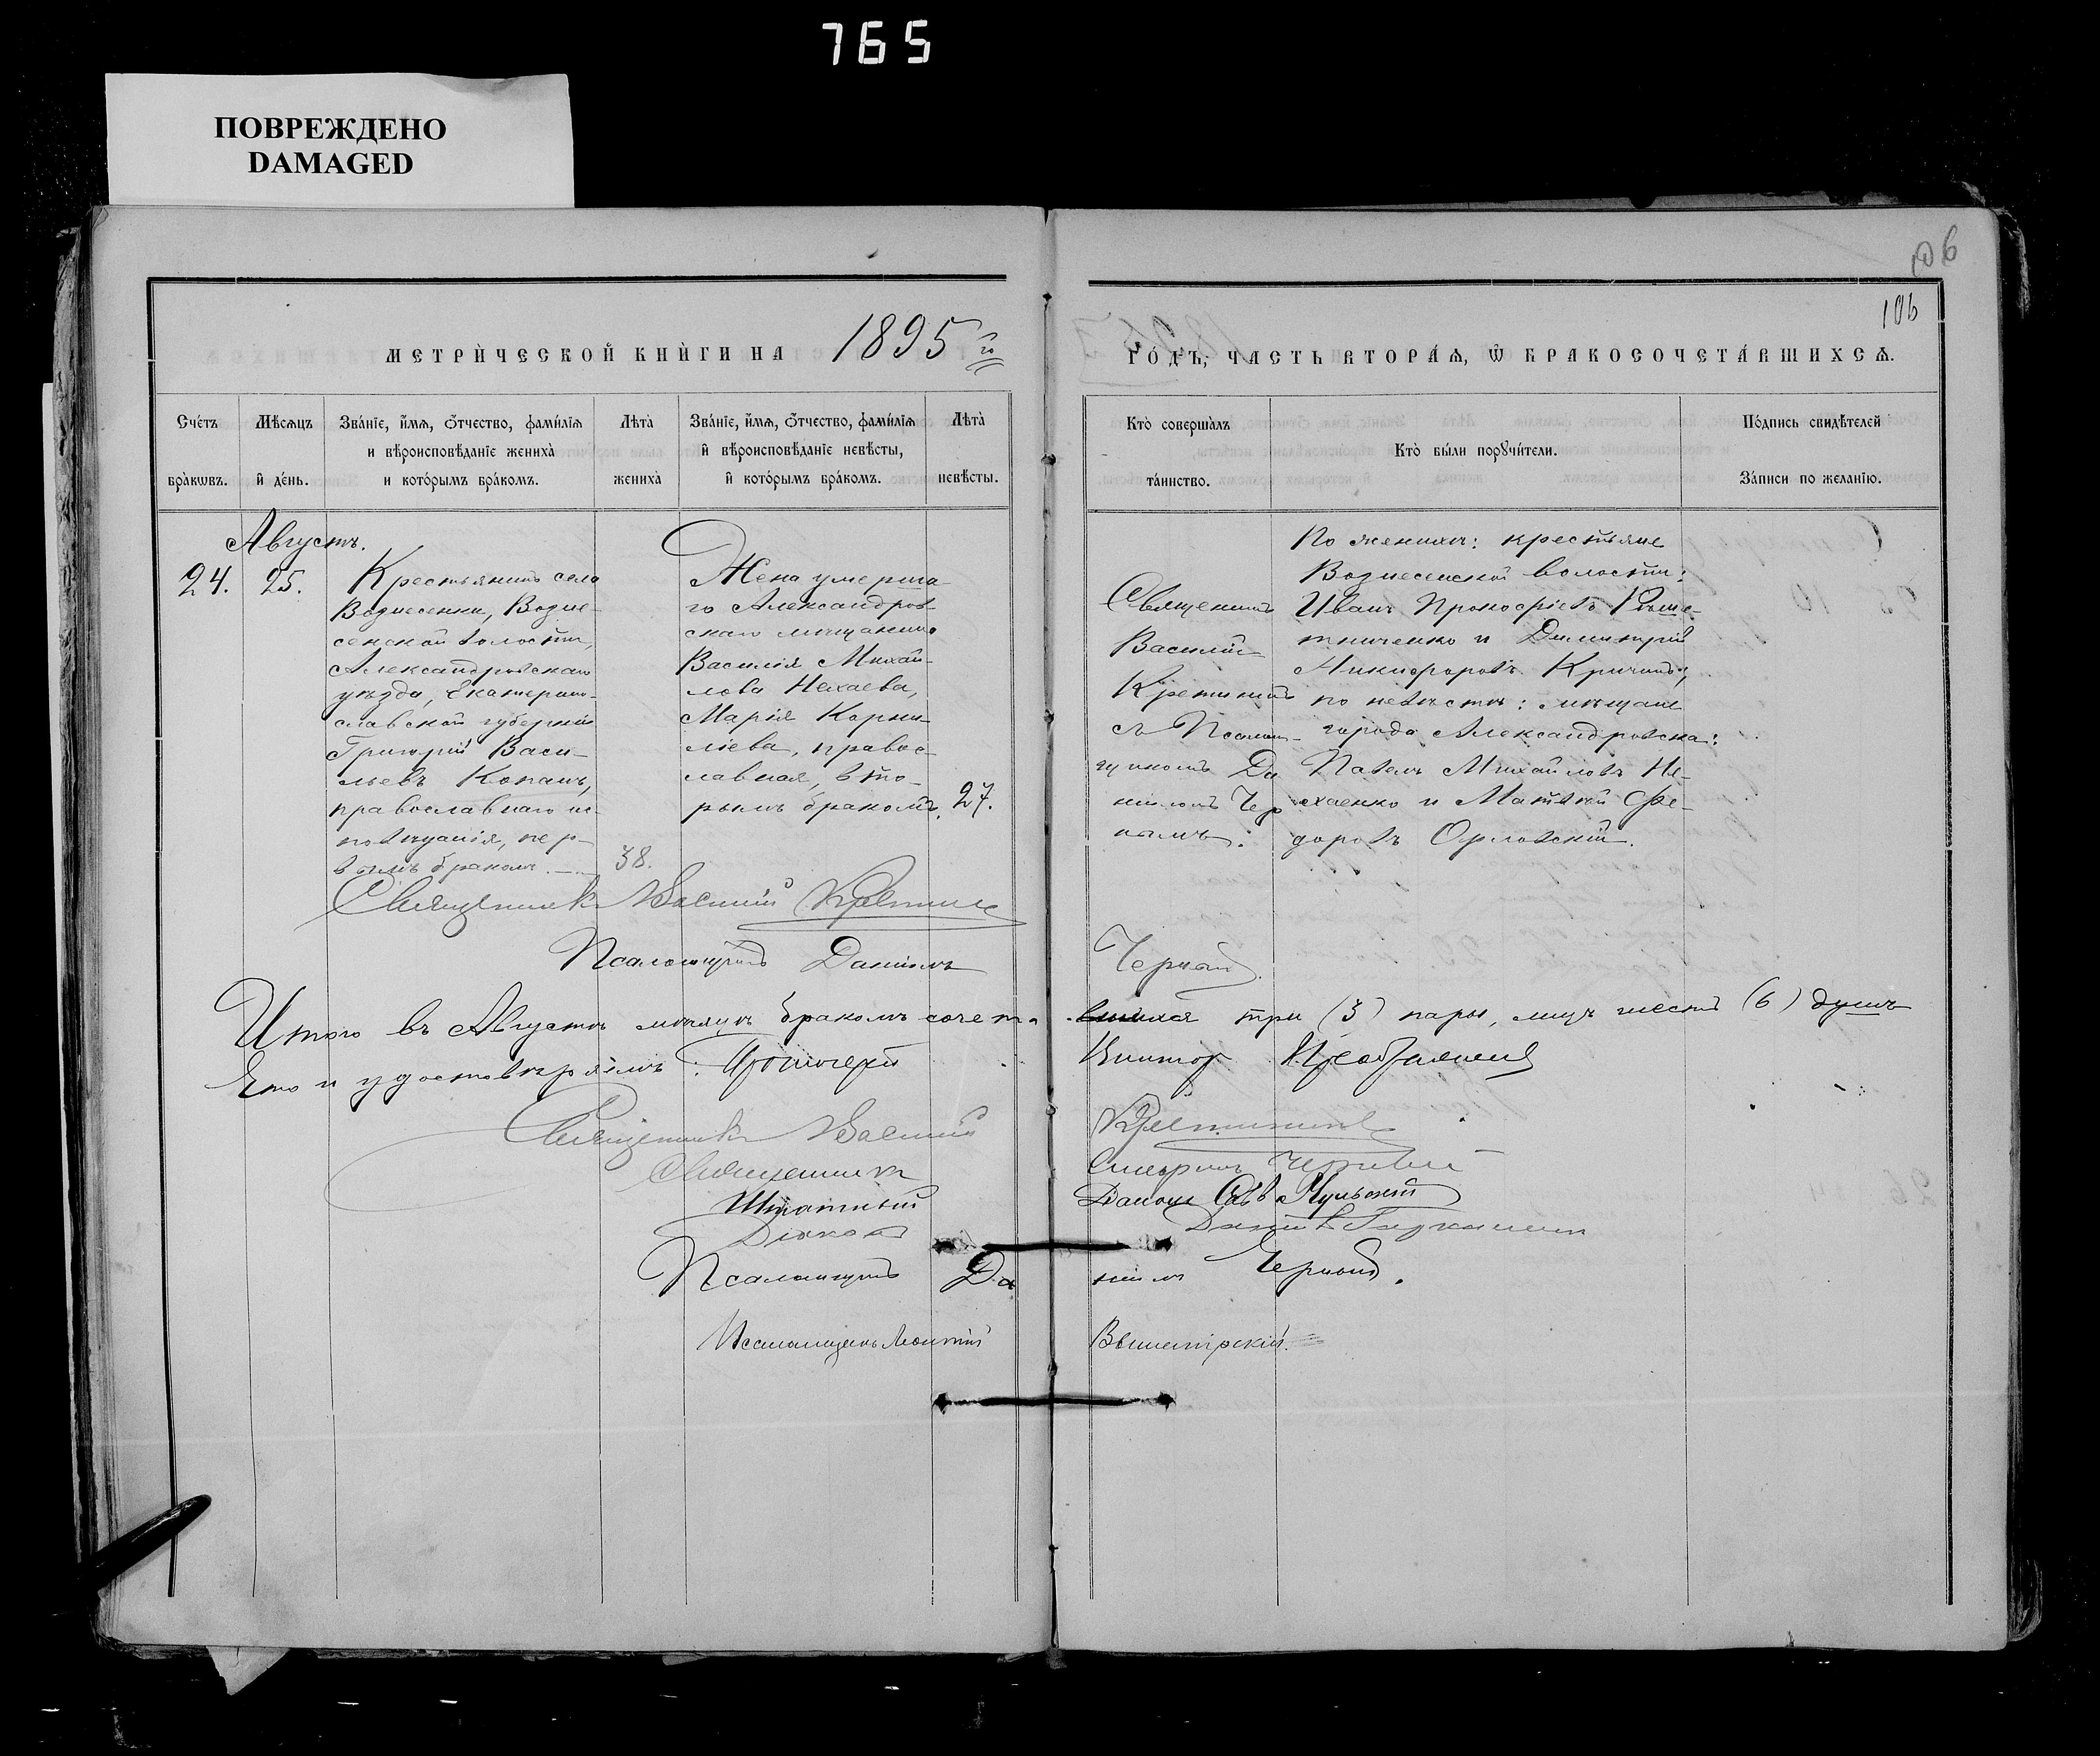 765
ПОВРЕЖДЕНО
DAMAGED
106
106
МЕТРИ́ЧЕСКОЙ КНИ́ГИ НА 1895 го
ГО́ДЪ, ЧАСТЬ ВТОРА́Я, Ѡ БРАКОСОЧЕТА́ВШИХСѦ.
Сче́тъ бра́кѡвъ.
Мѣ́сѧцъ и҆ де́нь.
Зва́нїе, и҆́мѧ, ѻ҆́тчество, фами́лїѧ
и вѣроисповѣ́данїе жениха̀
и кото́рымъ бра́комъ.
Лѣта̀ жениха̀
Зва́нїе, и҆́мѧ, ѻ҆́тчество, фами́лїѧ
и҆ вѣроисповѣ́данїе невѣ́сты,
и҆ кото́рымъ бра́комъ.
Лѣта̀ невѣ́сты.
Кто̀ соверша́лъ
та́инство.
Кто̀ бы́ли порꙋчи́тели.
По́дпись свидѣ́телей
За́писи по жела́нїю.
Августъ.
24. 25.
Крестьянинъ села
Вознесенки, Возне-
сенской волости,
Александровскаго
уѣзда, Екатерино-
славской губерніи
Григорій Васи-
льевъ Копанъ,
православнаго ис-
повѣданія, пер-
вымъ бракомъ.
38.
Жена умерша-
го Александров-
скаго мѣщанина
Василія Михай-
лова Нехаева,
Марія Корни-
ліева, правос-
лавная, вто-
рымъ бракомъ.
27.
Священникъ
Василій
Кретининъ
съ Псалом-
щикомъ Да
ніиломъ Чер
нымъ.
По женихѣ: крестьяне
Вознесенской волости:
Иванъ Прокофіевъ Рѣше-
тниченко и Димитрій
Никифоровъ Кричинъ;
по невѣстѣ: мѣщане
города Александровска:
Павелъ Михайловъ Не-
хаенко и Матѳей Ѳе-
доровъ Орловскій.
Священникъ Василій Кретининъ
Псаломщикъ Даніилъ Черный
Итого въ Августѣ мѣсяцѣ бракомъ сочета-вшихся три (3) пары, лицъ шесть (6) душъ
Что и удостовѣряемъ: Протоіерей Викторъ Преображенскій
Священникъ Василій Кретининъ
Священникъ
Штатный Діаконъ Савва
Діаконъ
Псаломщикъ Даніилъ Черный.
Псаломщикъ Леонтій